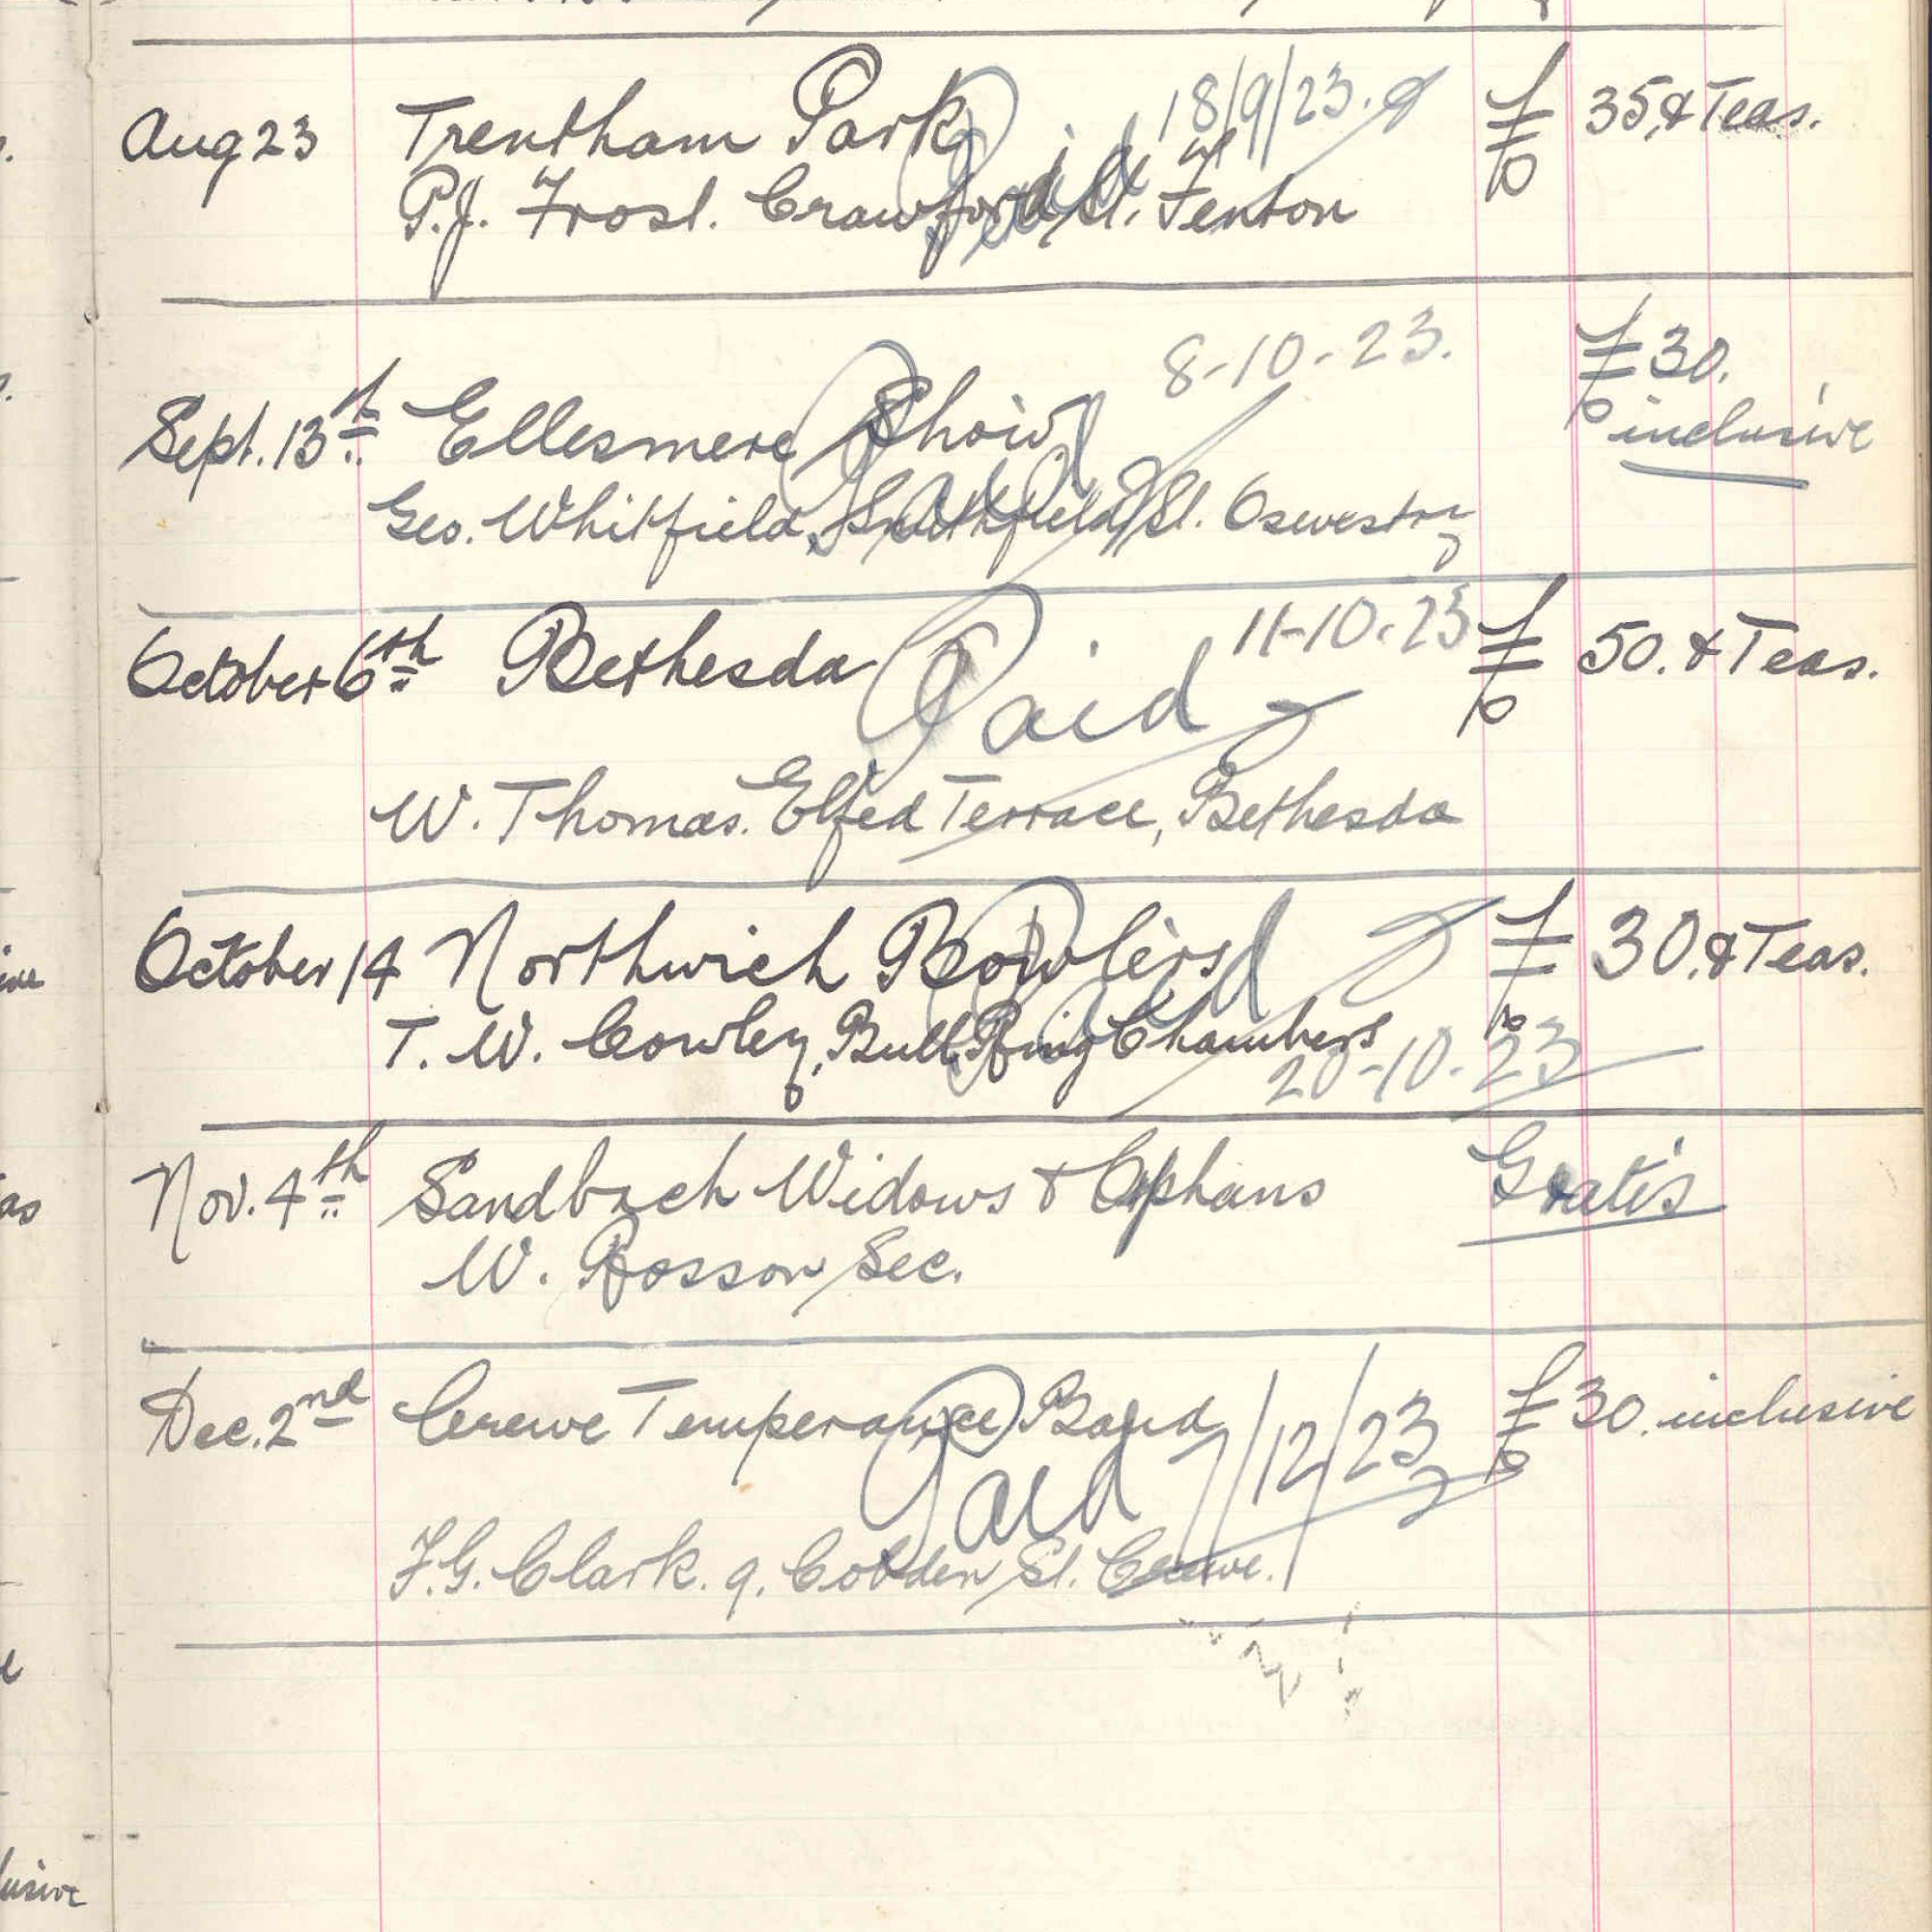 Aug 23 Trentham Park Paid 18/9/23. £ 35, & Teas.
P.J. Frost. Crawford St. Fenton
8-10-23. £30.
Sept. 13th Ellesmere Show Paid inclusive
Geo. Whitfield, Smithfield St. Oswestry
October 6th Bethesda Paid 11-10-23 £ 50. & Teas.
W. Thomas. Elfed Terrace, Bethesda
October 14 Northwich Bowlers Paid £ 30. & Teas.
T. W. Cowley, Bull Ring Chambers
20-10-23
Nov. 4th Sandbach Widows & Orphans Gratis
W. Rosson Sec.
Dec. 2nd Crewe Temperance Band £ 30. inclusive
Paid 7/12/23
F.G. Clark. 9. Cobden St. Crewe.